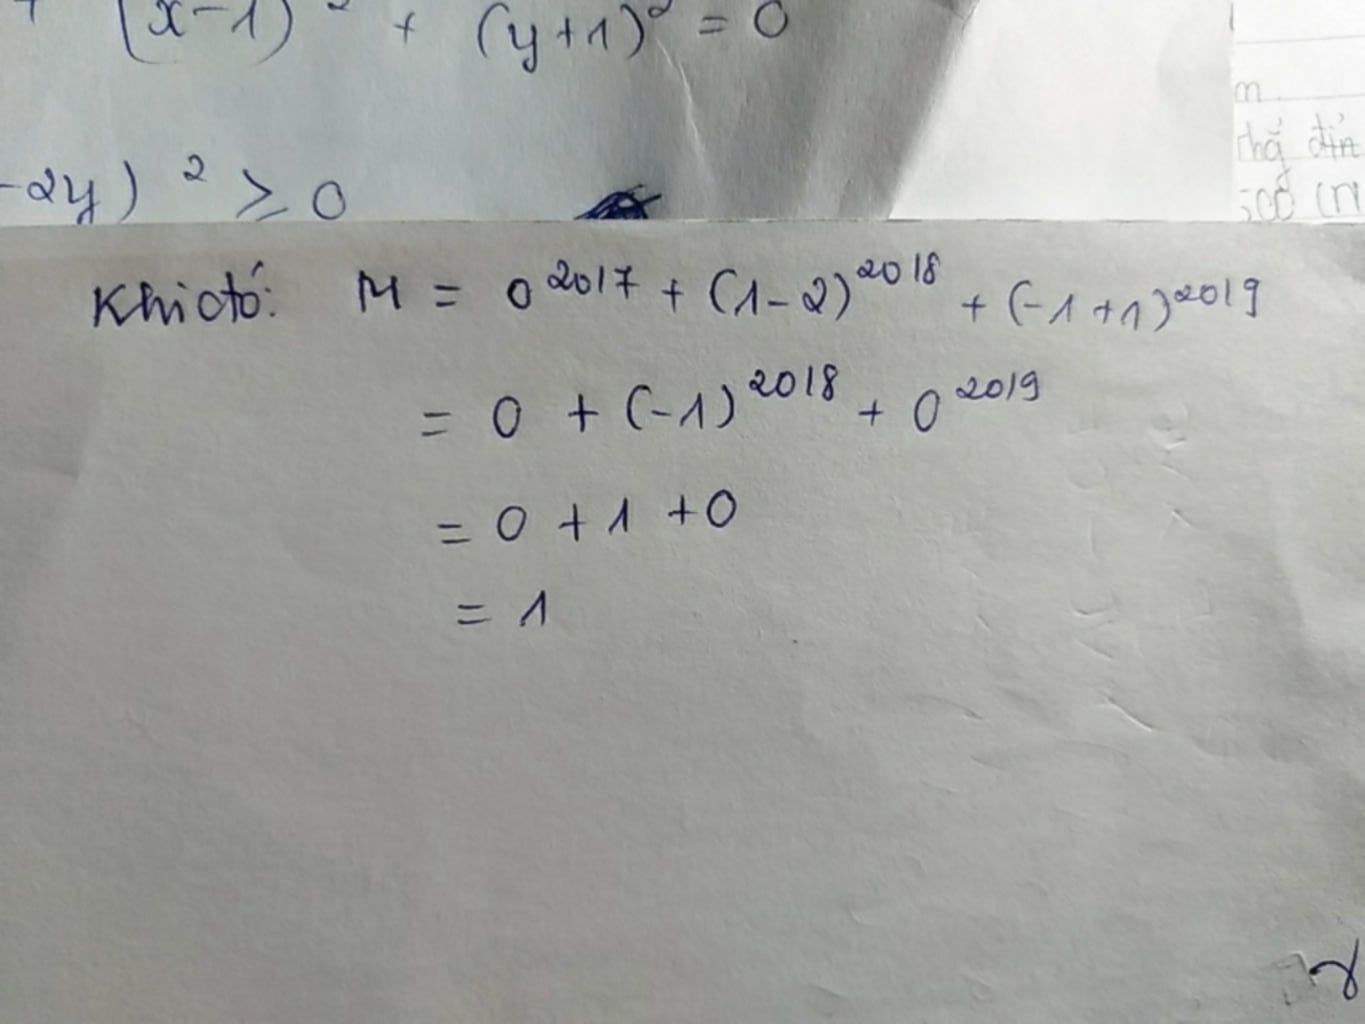 (x-1)² + (y+1)² = 0
-2y)² ≥ 0
Khi đó: M = 0²⁰¹⁷ + (1-2)²⁰¹⁸ + (-1+1)²⁰¹⁹
= 0 + (-1)²⁰¹⁸ + 0²⁰¹⁹
= 0 + 1 + 0
= 1